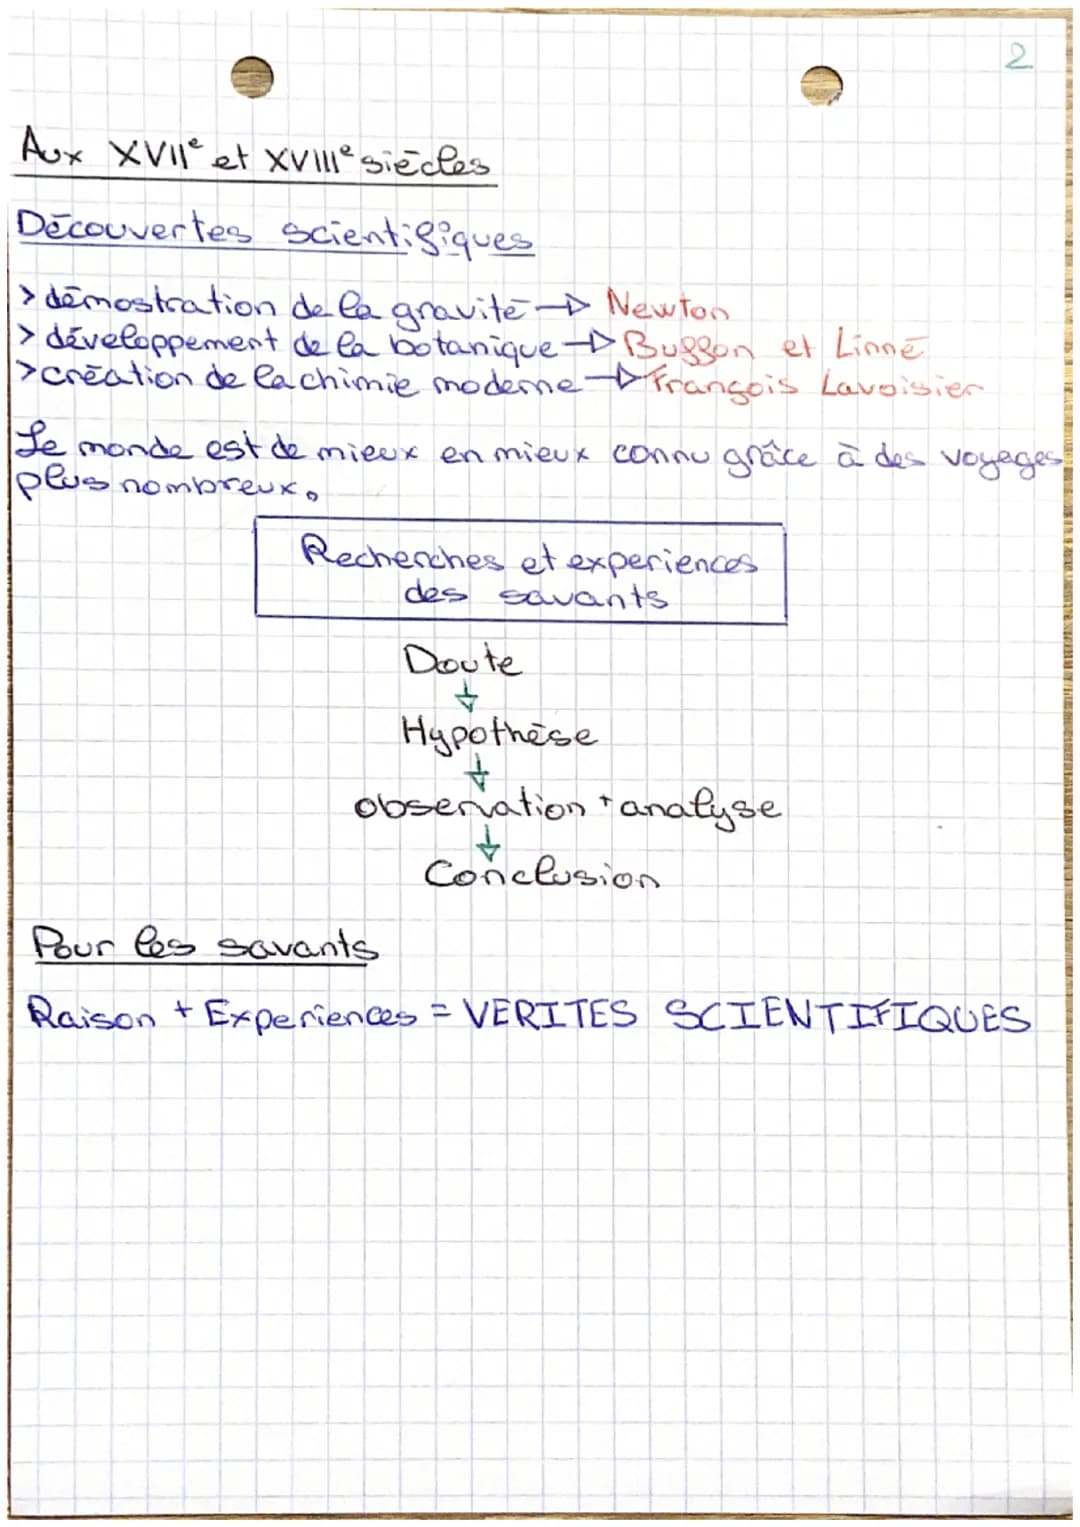 2
Aux XVIIe et XVIIIe siècles
Découvertes scientifiques
> démostration de la gravité → Newton
> développement de la botanique → Buffon et Linné
> création de la chimie moderne → François Lavoisier
Le monde est de mieux en mieux connu grâce à des voyages
plus nombreux.
Recherches et experiences
des savants
Doute
↓
Hypothèse
↓
observation + analyse
↓
Conclusion
Pour les savants
Raison + Experiences = VERITES SCIENTIFIQUES